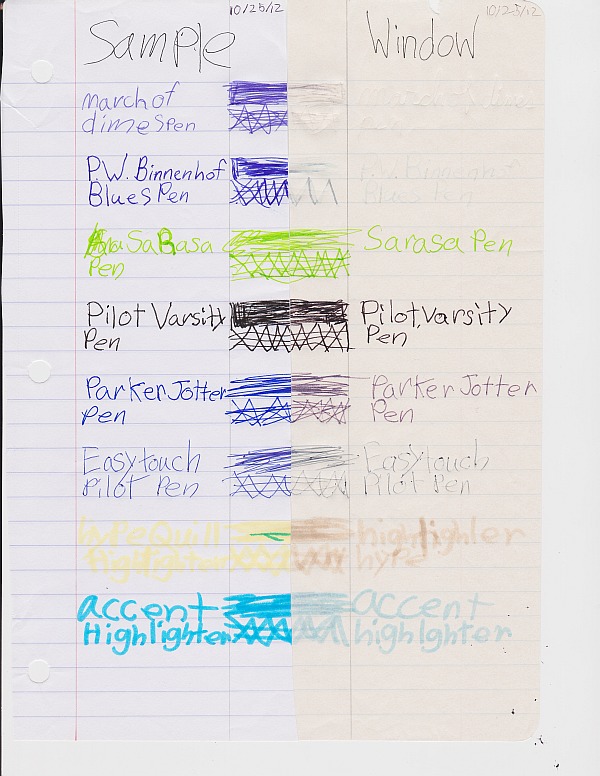 10/25/12
Sample
march of
dimes pen
P.W. Binnenhof
Blues Pen
SaRasa
Pen
Pilot Varsity
Pen
Parker Jotter
Pen
Easytouch
Pilot Pen
hype Quill
highlighter
accent
Highlighter
10/25/12
Window
pen
P.W. Binnenhof
Blues Pen
Sarasa Pen
Pilot, varsity
Pen
Parker Jotter
Pen
Easytouch
Pilot Pen
highlighter
hype
accent
highlghter